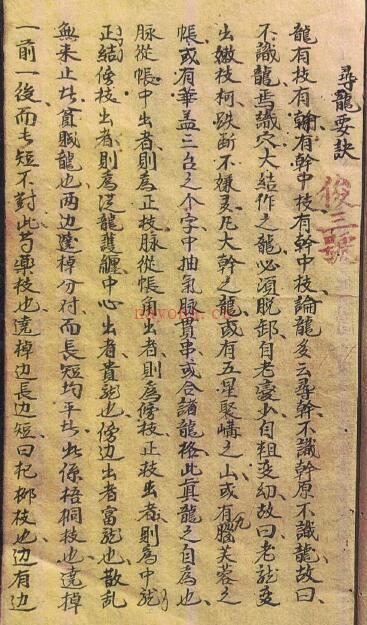 尋龍要訣
俊三號
龍有枝有幹有幹中枝有幹中枝論龍多云尋幹不識幹原不識龍故曰
不識龍焉識穴大結作之龍必須脫卸自老豪少自粗变幼故曰老龍变
出嫩枝柯跌断不嫌多凡大幹之龍或有五星聚講之山或有九腦芙蓉之
帳或有華盖三台之个字中抽氣脉貫串或合諸龍格此真龍之自為也
脉從帳中出者則為正枝脉從帳角出者則為傍枝正枝出者則為中龍
正結傍枝出者則為從龍護纏中心出者貴龍也傍边出者富龍也散乱
無来止此貧賎龍也両边遶棹分付而長短均平此出係梧桐枝也遶棹
一前一後而長短不對此芍藥枝也遶棹边長边短曰杞梛枝也边有边